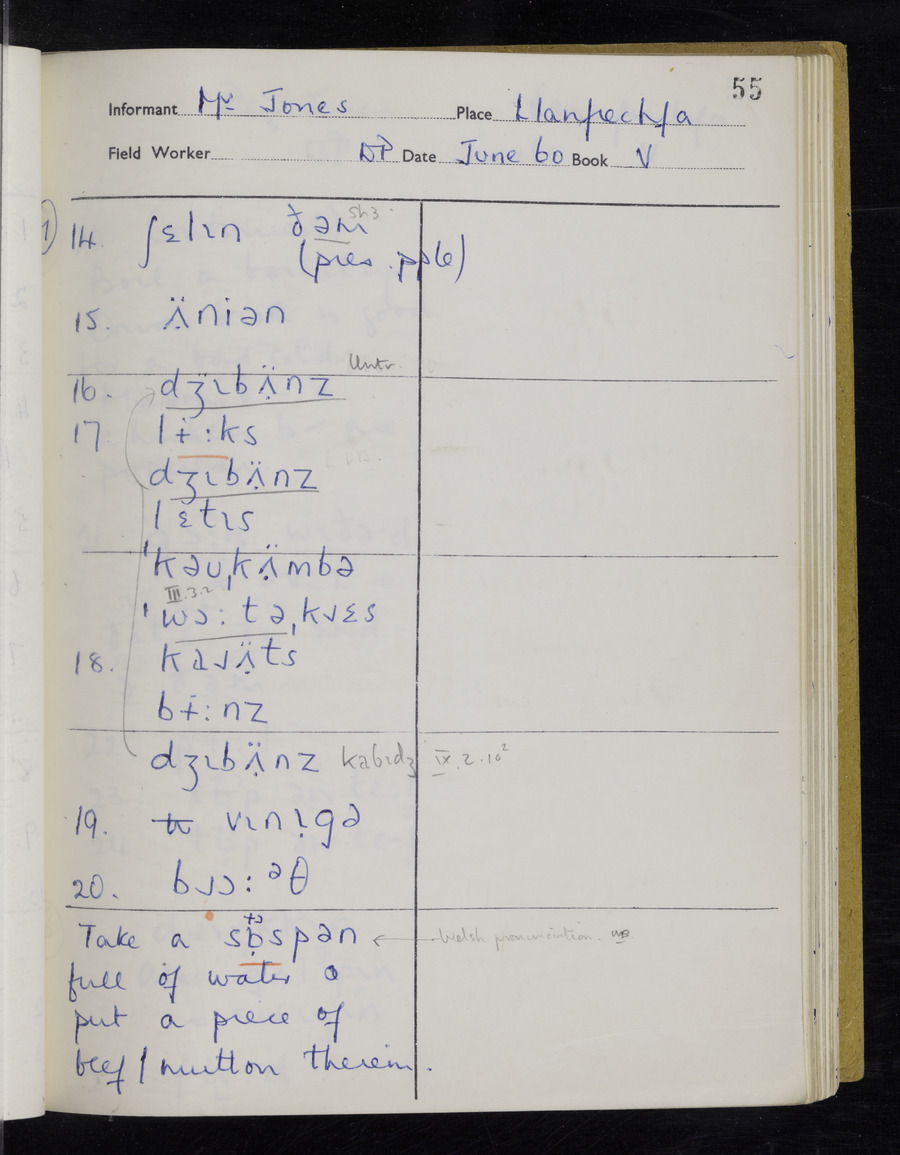 55
Informant Mr Jones Place Llanfrechfa
Field Worker DP Date June 60 Book V
14. ʃɛlɪn ðəm
(pres. pple)
15. ʌ̈niən
Untr.
16. dʒɪbʌ̈nz
17 lɨ:ks
dʒɪbʌ̈nz
lɛtɪs
ˈkəʊˌkʌ̈mbə
III.3.2
ˈwɔ:təˌkɹɛs
18. kaɹʌ̈ts
bɨ:nz
dʒɪbʌ̈nz kabɪdʒ IX.2.10²
19. vɪnɪgə
20. bɹɔ:ᵊθ
Take a sɒspən ← Welsh pronunciation.
full of water &
put a piece of
beef / mutton therein.